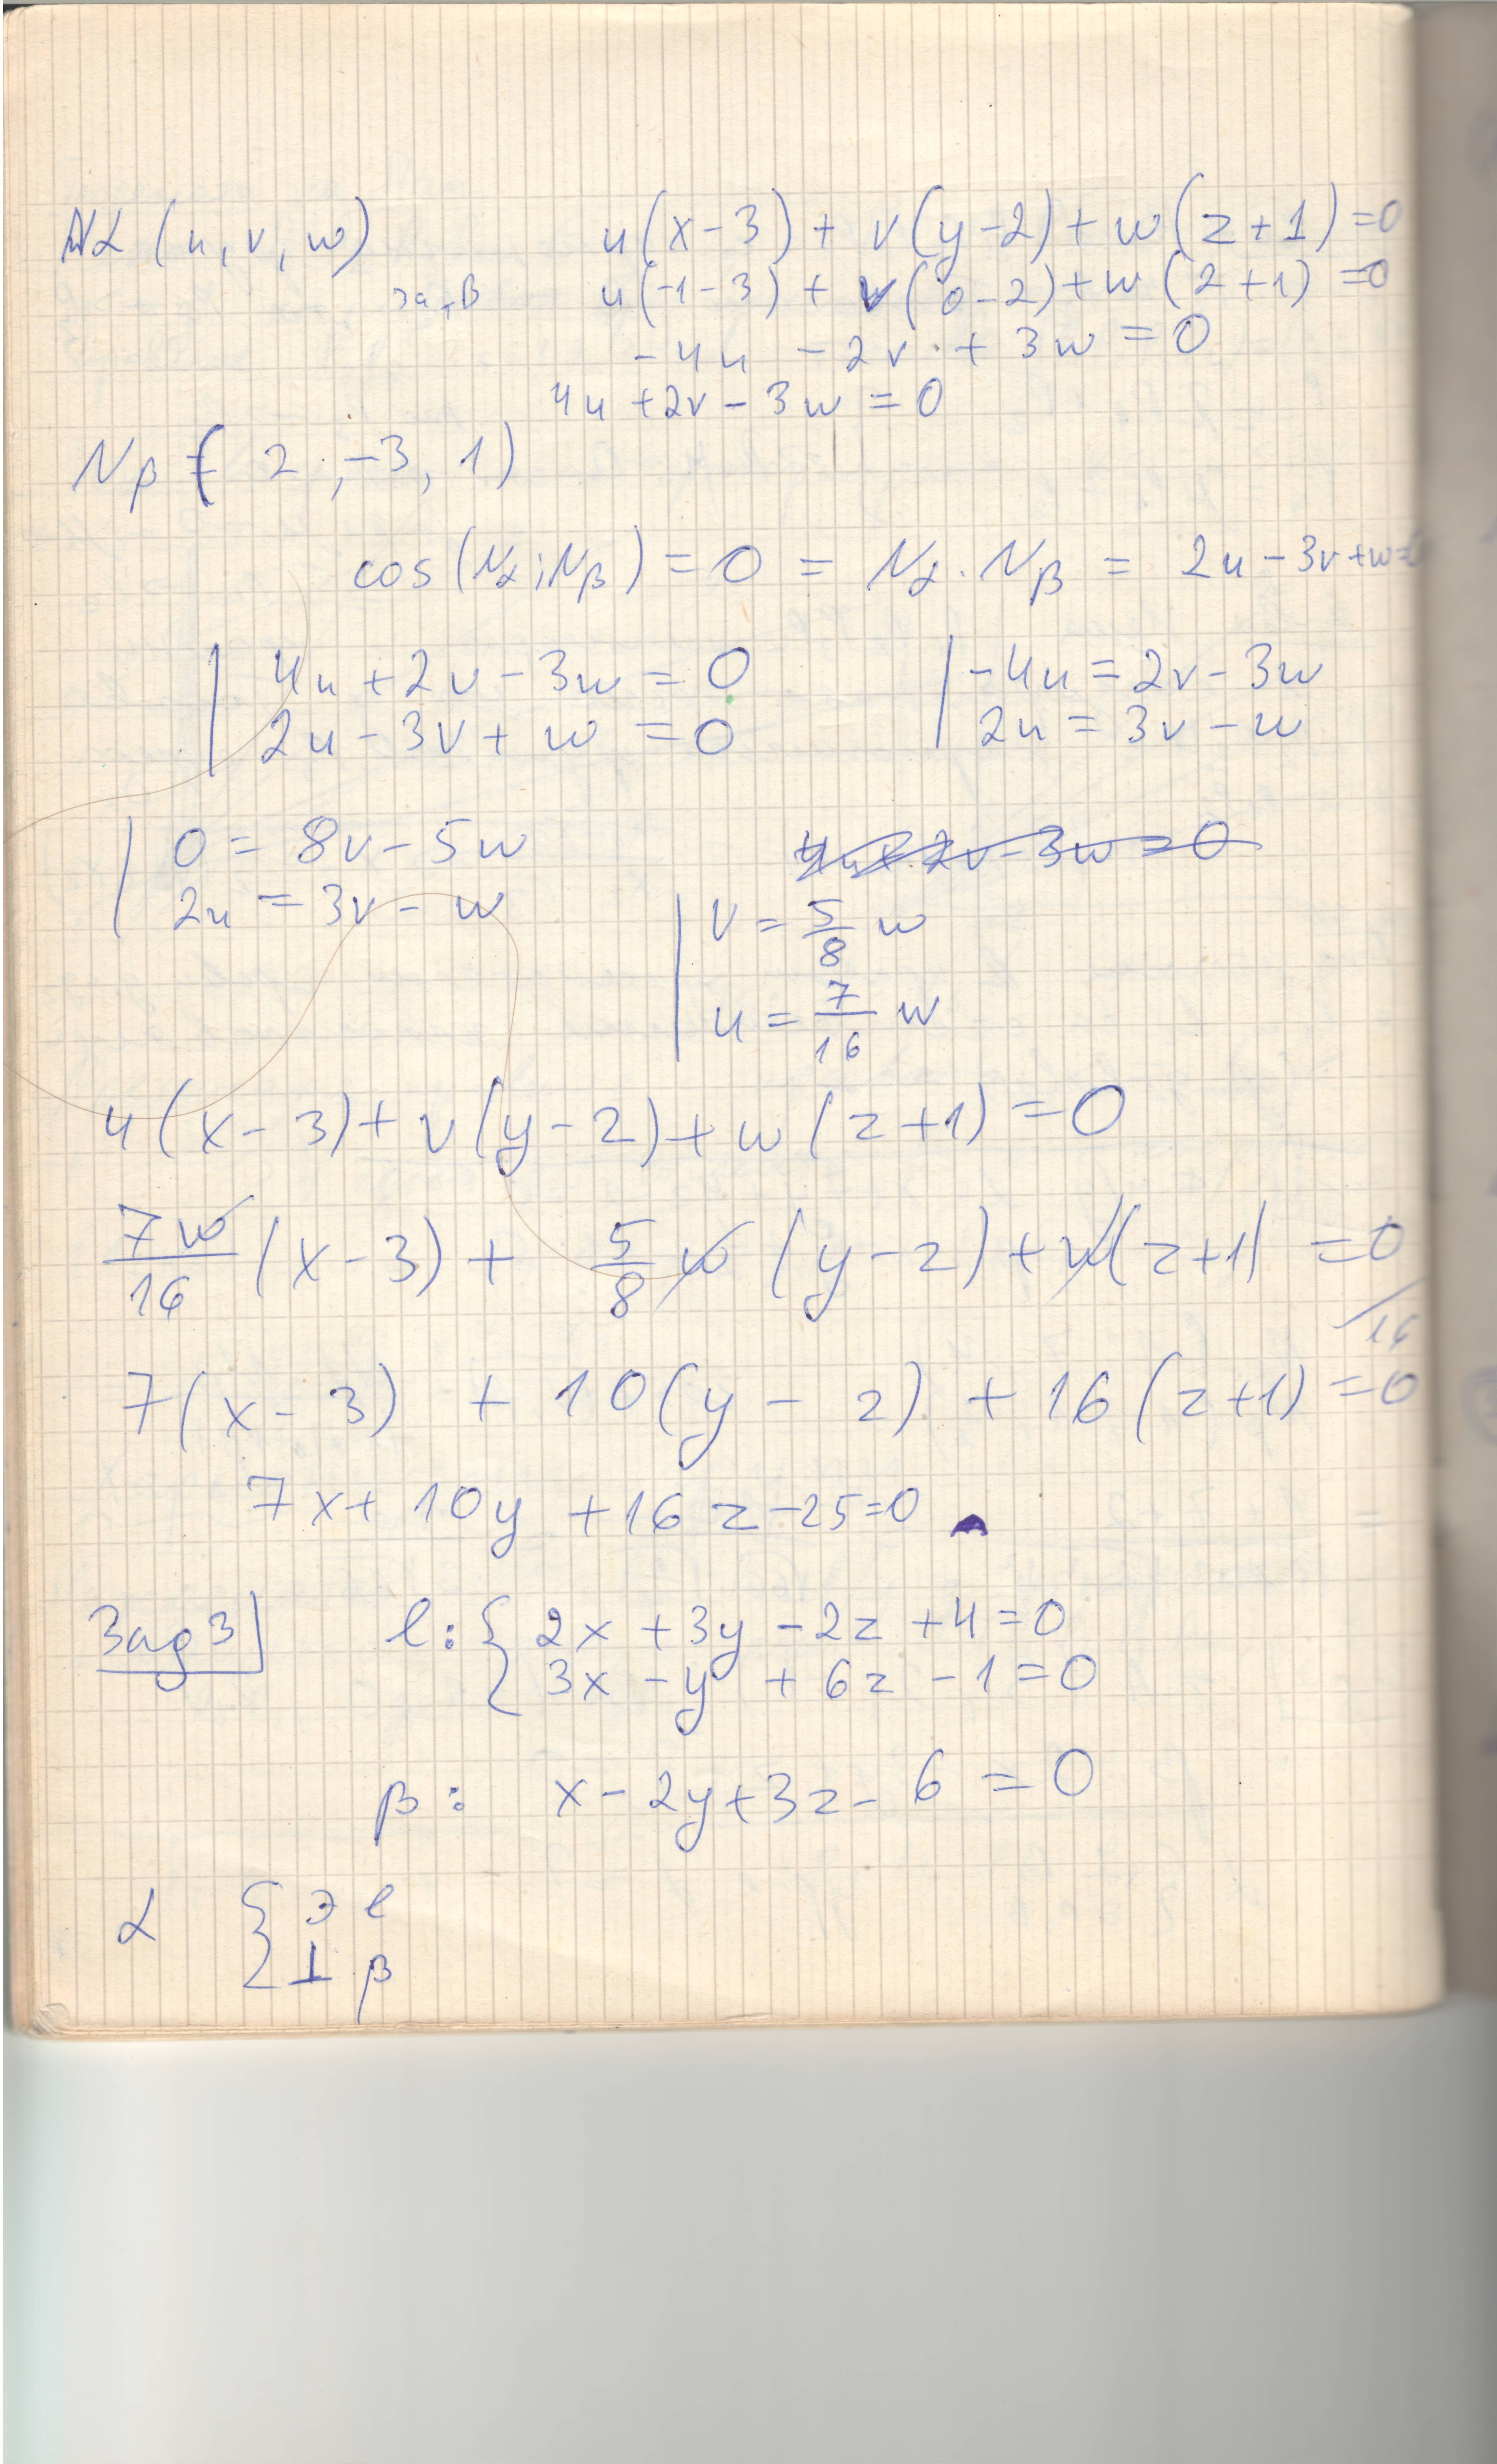 Nα (u, v, w)
u(x-3) + v(y-2) + w(z+1) = 0
u(-1-3) + v(0-2) + w(2+1) = 0
-4u - 2v + 3w = 0
4u + 2v - 3w = 0
Nβ = (2, -3, 1)
cos(Nα; Nβ) = 0 = Nα . Nβ = 2u - 3v + w =
| 4u + 2v - 3w = 0
| 2u - 3v + w = 0
| -4u = 2v - 3w
| 2u = 3v - w
| 0 = 8v - 5w
| 2u = 3v - w
4u + 2v - 3w = 0
| v = 5/8 w
| u = 7/16 w
u(x-3) + v(y-2) + w(z+1) = 0
7w/16 (x-3) + 5/8 w (y-2) + w(z+1) = 0 /16
7(x-3) + 10(y-2) + 16(z+1) = 0
7x + 10y + 16z - 25 = 0
Зад 3
l: { 2x + 3y - 2z + 4 = 0
3x - y + 6z - 1 = 0
β: x - 2y + 3z - 6 = 0
α { ∋ l
⊥ β